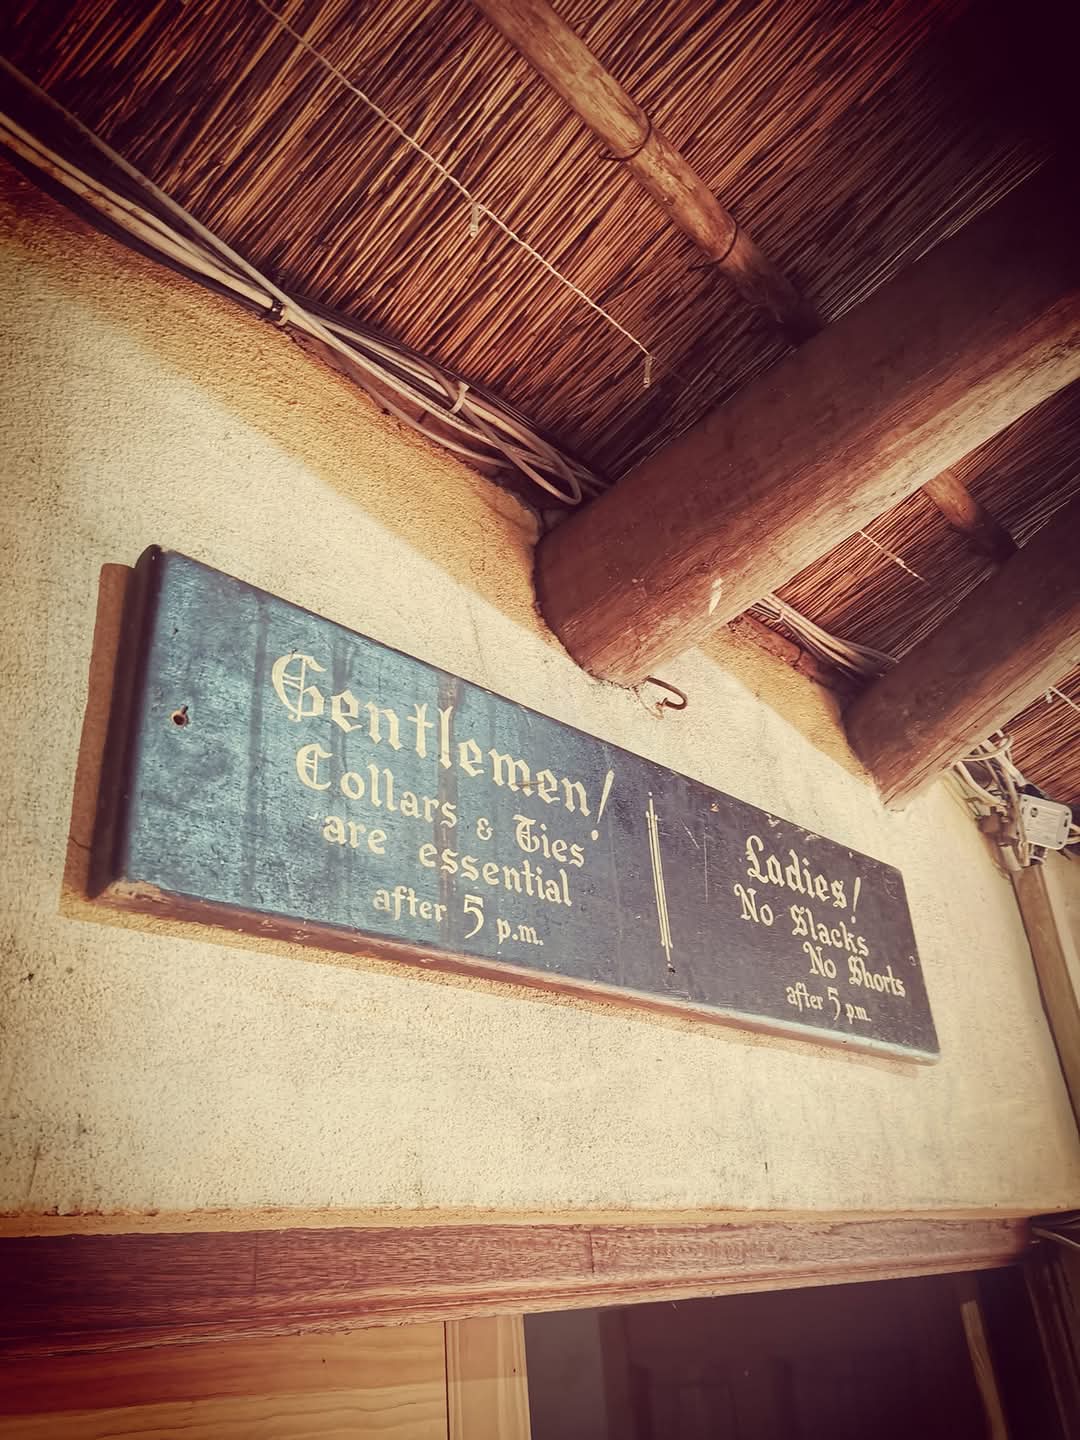 Gentlemen!
Collars & Ties
are essential
after 5 p.m.
Ladies!
No Slacks
No Shorts
after 5 p.m.